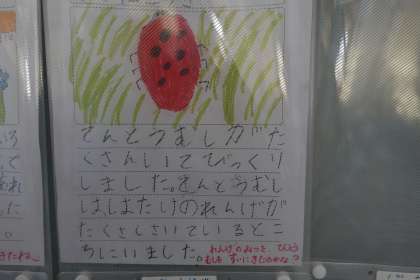 てんとうむしがた
くさんいてびっくり
しました。てんとうむし
はしはたけのれんげが
たくさんさいているとこ
ろにいました。
れんげのみつを てんとう
むしも すいにきたのかな？